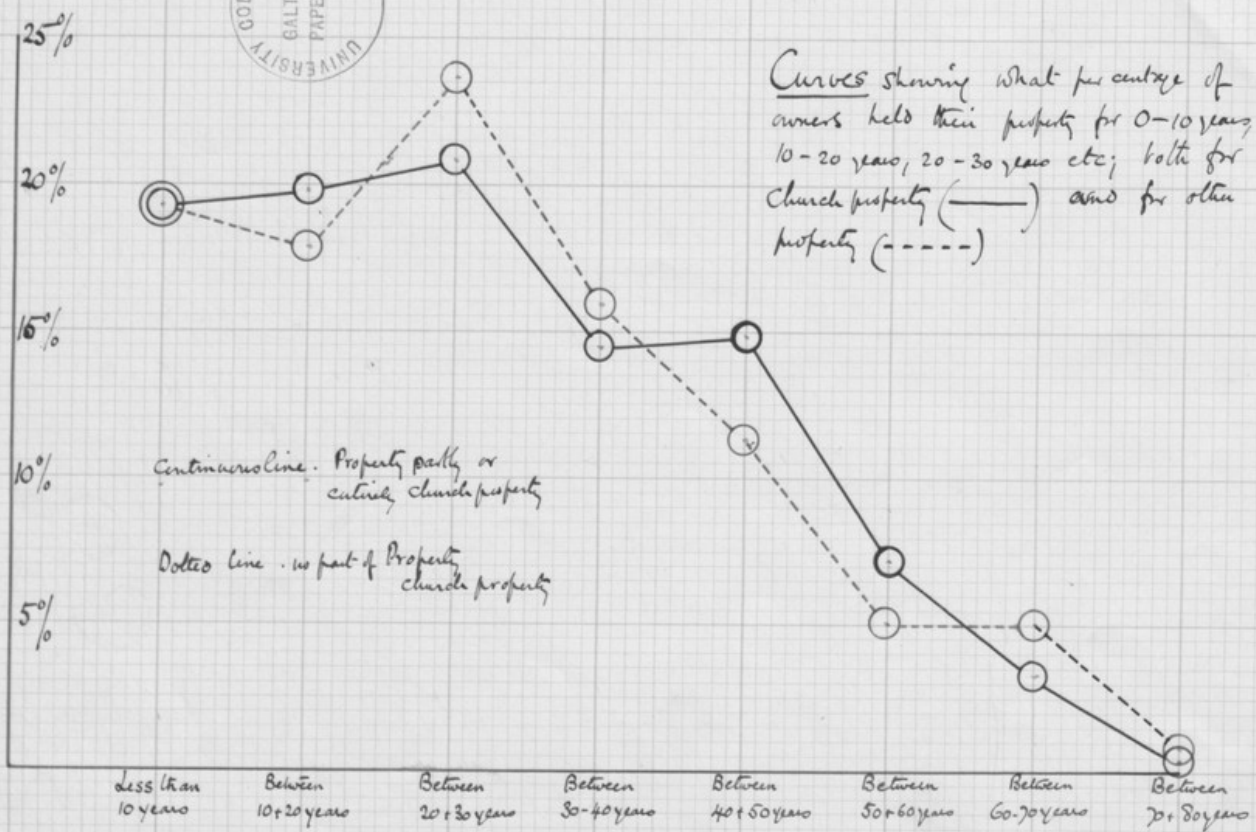 25%
UNIVERSITY CO
GALT
PAPE
Curves showing what per centage of
owners held their property for 0-10 years,
10-20 years, 20-30 years etc; both for
Church property (———) and for other
property (-----)
20%
15%
10%
Continuous line. Property partly or
entirely church property
Dotted line. no part of Property
church property
5%
Less than
10 years
Between
10+20 years
Between
20+30 years
Between
30-40 years
Between
40+50 years
Between
50+60 years
Between
60-70 years
Between
70+80 years